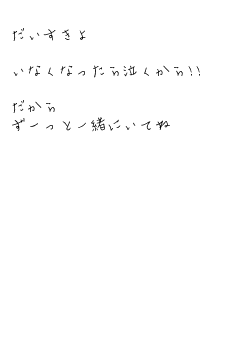 だいすきよ
いなくなったら泣くから!!
だから
ずーっと一緒にいてね